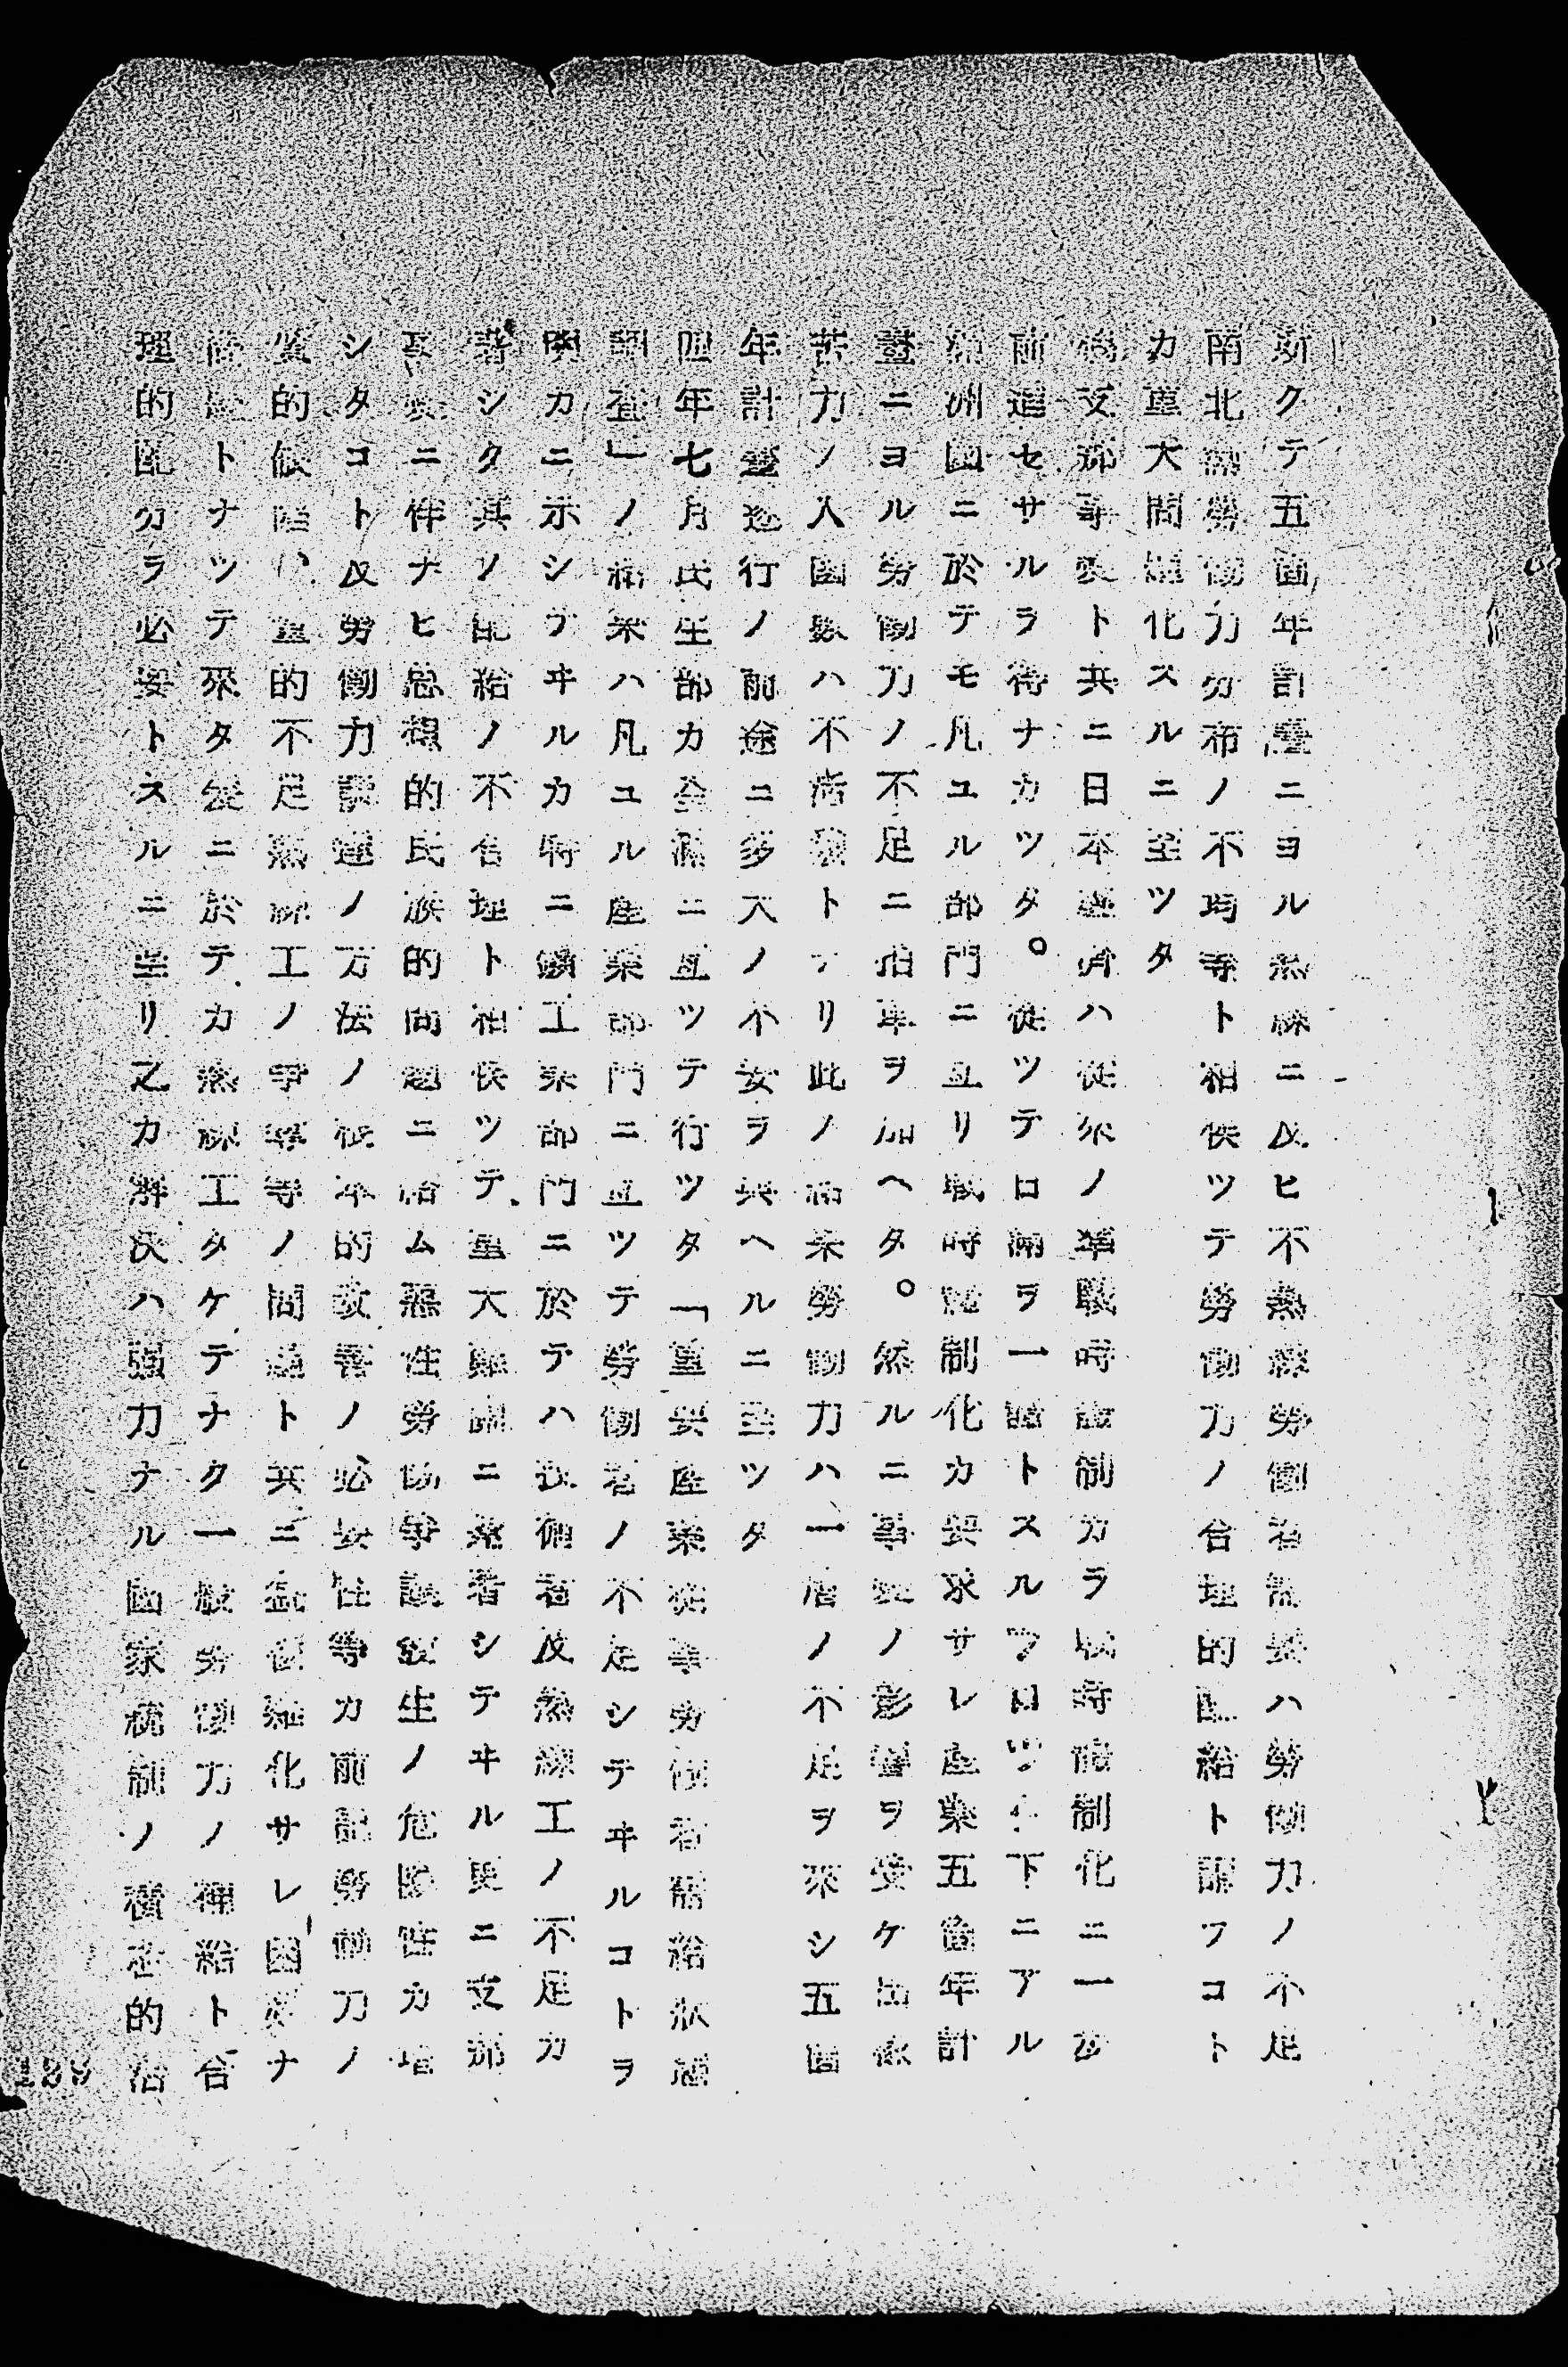 斯クテ五箇年計畫ニヨル熟練ニ及ヒ不熟練勞働者需要ハ勞働力ノ不足
南北滿勞働力分布ノ不均等ト相俟ツテ勞働力ノ合理的配給ト謂フコト
カ重大問題化スルニ至ツタ
偶支那事變ト共ニ日本經濟ハ從來ノ準戰時體制カラ戰時體制化ニ一歩
前進セサルヲ得ナカツタ。從ツテ日滿ヲ一體トスルブロツク下ニアル
滿洲國ニ於テモ凡ユル部門ニ亙リ戰時體制化カ要求サレ產業五箇年計
畫ニヨル勞働力ノ不足ニ拍車ヲ加ヘタ。然ルニ事變ノ影響ヲ受ケ山東
苦力ノ入國數ハ不活潑トナリ此ノ結果勞働力ハ一層ノ不足ヲ來シ五箇
年計畫遂行ノ前途ニ多大ノ不安ヲ與ヘルニ至ツタ
四年七月民生部カ全滿ニ亙ツテ行ツタ「重要產業從事勞働者需給狀態
調査」ノ結果ハ凡ユル產業部門ニ亙ツテ勞働者ノ不足シテヰルコトヲ
明カニ示シテヰルカ特ニ鑛工業部門ニ於テハ技術者及熟練工ノ不足カ
著シク其ノ配給ノ不合理ト相俟ツテ重大難關ニ逢着シテヰル更ニ支那
事變ニ伴ナヒ思想的民族的問題ニ絡ム惡性勞働爭議發生ノ危險性カ增
シタコト及勞働力調達ノ方法ノ根本的改善ノ必要性等カ前記勞働力ノ
質的缺陷、量的不足熟練工ノ爭奪等ノ問題ト共ニ益複雜化サレ困難ナ
トナツテ來タ茲ニ於テカ熟練工タケテナク一般勞働力ノ補給ト合
理的配分ヲ必要トスルニ至リ之カ解決ハ強力ナル國家統制ノ積極的活
129